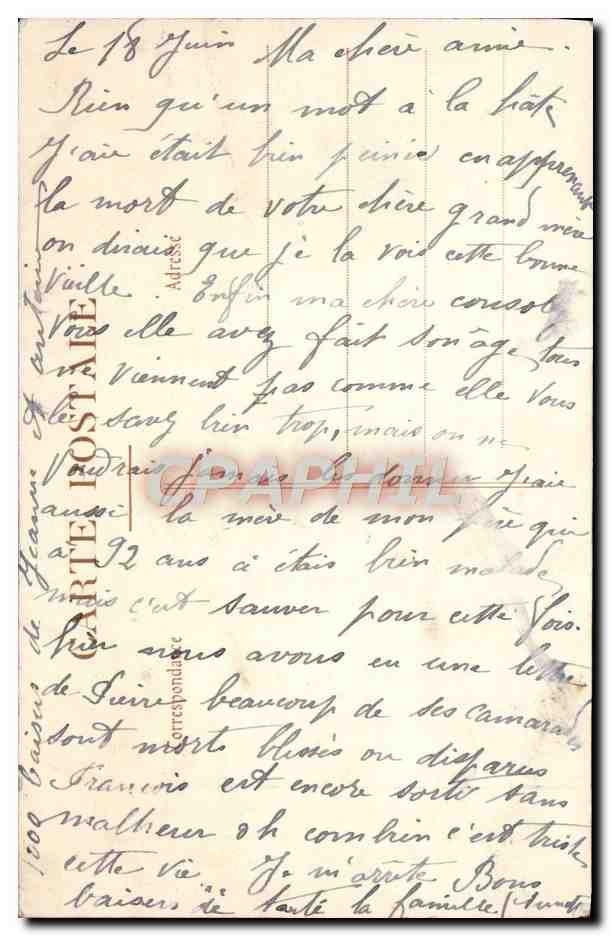 Le 18 Juin Ma chère amie.
Rien qu'un mot à la hâte
J'aie était bien peinée en apprenant
la mort de votre chère grand mère
on dirais que je la vois cette bonne
vieille. Enfin ma chère consol
vous elle avez fait son âge tous
ne viennent pas comme elle vous
le savez bien trop, mais on ne
voudrais jamais les donner J'aie
aussi la mère de mon père qui
a 92 ans à étais bien malade
mais c'est sauver pour cette fois.
hier nous avons eu une lettre
de Pierre beaucoup de ses camarades
sont morts blessés ou disparus
François est encore sorti sans
malheur oh combien c'est triste
cette vie. Je m'arrête Bons
baisers de toute la famille
1000 baisers de Jeanne et
CARTE POSTALE
Correspondance
Adresse
CPAPHIL